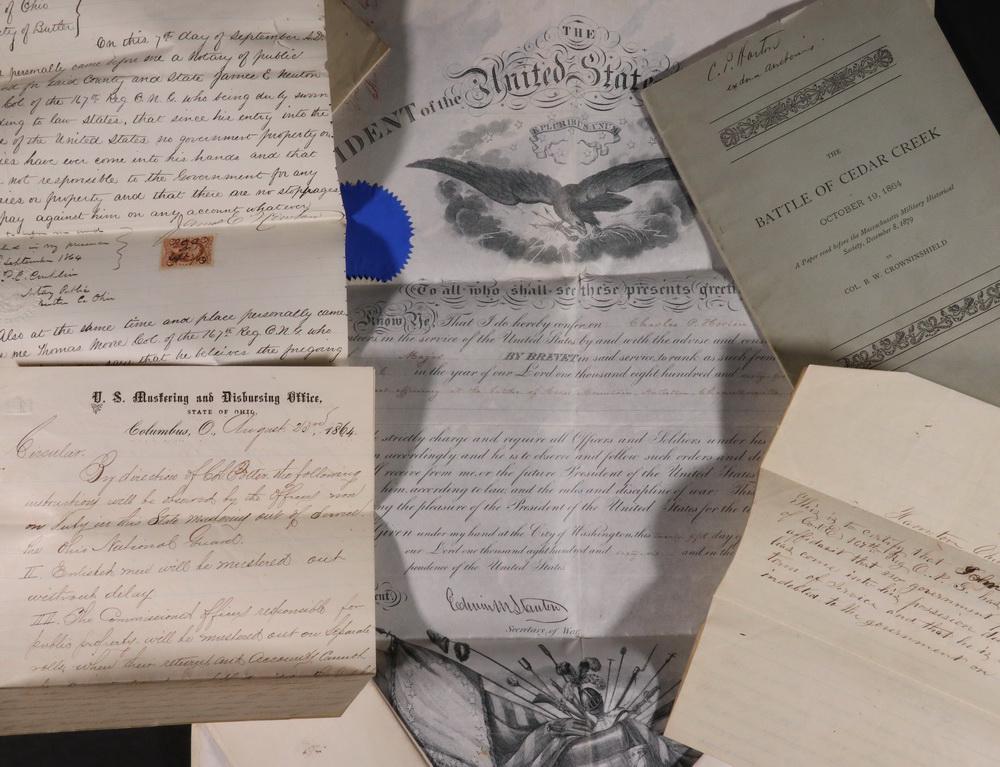 of Ohio
ty of Butler
On this 7th day of September A.D.
personally came before me a Notary of public
for said County and State James E Newton
Col. of the 167th Reg O.N.G. who being duly sworn
ding to law States, that since his entry into the
e of the United States no government property or
ies have ever come into his hands and that
not responsible to the Government for any
ies or property and that there are no stoppages
pay against him on any account whatever
James E Newton
in my presence
September 1864
Notary Public
Butler Co Ohio
Also at the same time and place personally came
me Thomas Moore Col. of the 167th Reg O.N.G. who
says that he believes the foregoing
U. S. Mustering and Disbursing Office,
STATE OF OHIO,
Columbus, O., August 23rd, 1864.
Circular.
By direction of Col. Potter the following
instructions will be observed by the Officers now
on duty in this State mustering out of service
the Ohio National Guard.
II. Enlisted men will be mustered out
without delay.
III. The Commissioned officers responsible for
public property will be mustered out on Separate
rolls when their returns and Accounts
THE
United State
IDENT of the
E PLURIBUS UNUM
To all who shall see these presents greeti
Know Ye, That I do hereby confer on Charles P. Horton
teers in the service of the United States by and with the advice and conse
Major BY BREVET in said service, to rank as such from
in the year of our Lord one thousand eight hundred and
at the battles of
strictly charge and require all Officers and Soldiers under his
accordingly and he is to observe and follow such orders and di
ll receive from me, or the future President of the United States
him according to law, and the rules and discipline of war. This
ng the pleasure of the President of the United States for the t
Given under my hand at the City of Washington, this day of
our Lord one thousand eight hundred and and in the
pendence of the United States
ent,
Edwin M Stanton
Secretary of War
C. P. Horton
THE
BATTLE OF CEDAR CREEK
OCTOBER 19, 1864
A Paper read before the Massachusetts Military Historical
Society, December 8, 1879
BY
COL. B. W. CROWNINSHIELD
This is to certify that John
of Co. 167th Reg O.N.G. has
affidavit that no government
has come into his possession
term of Service and that he is
indebted to the government on